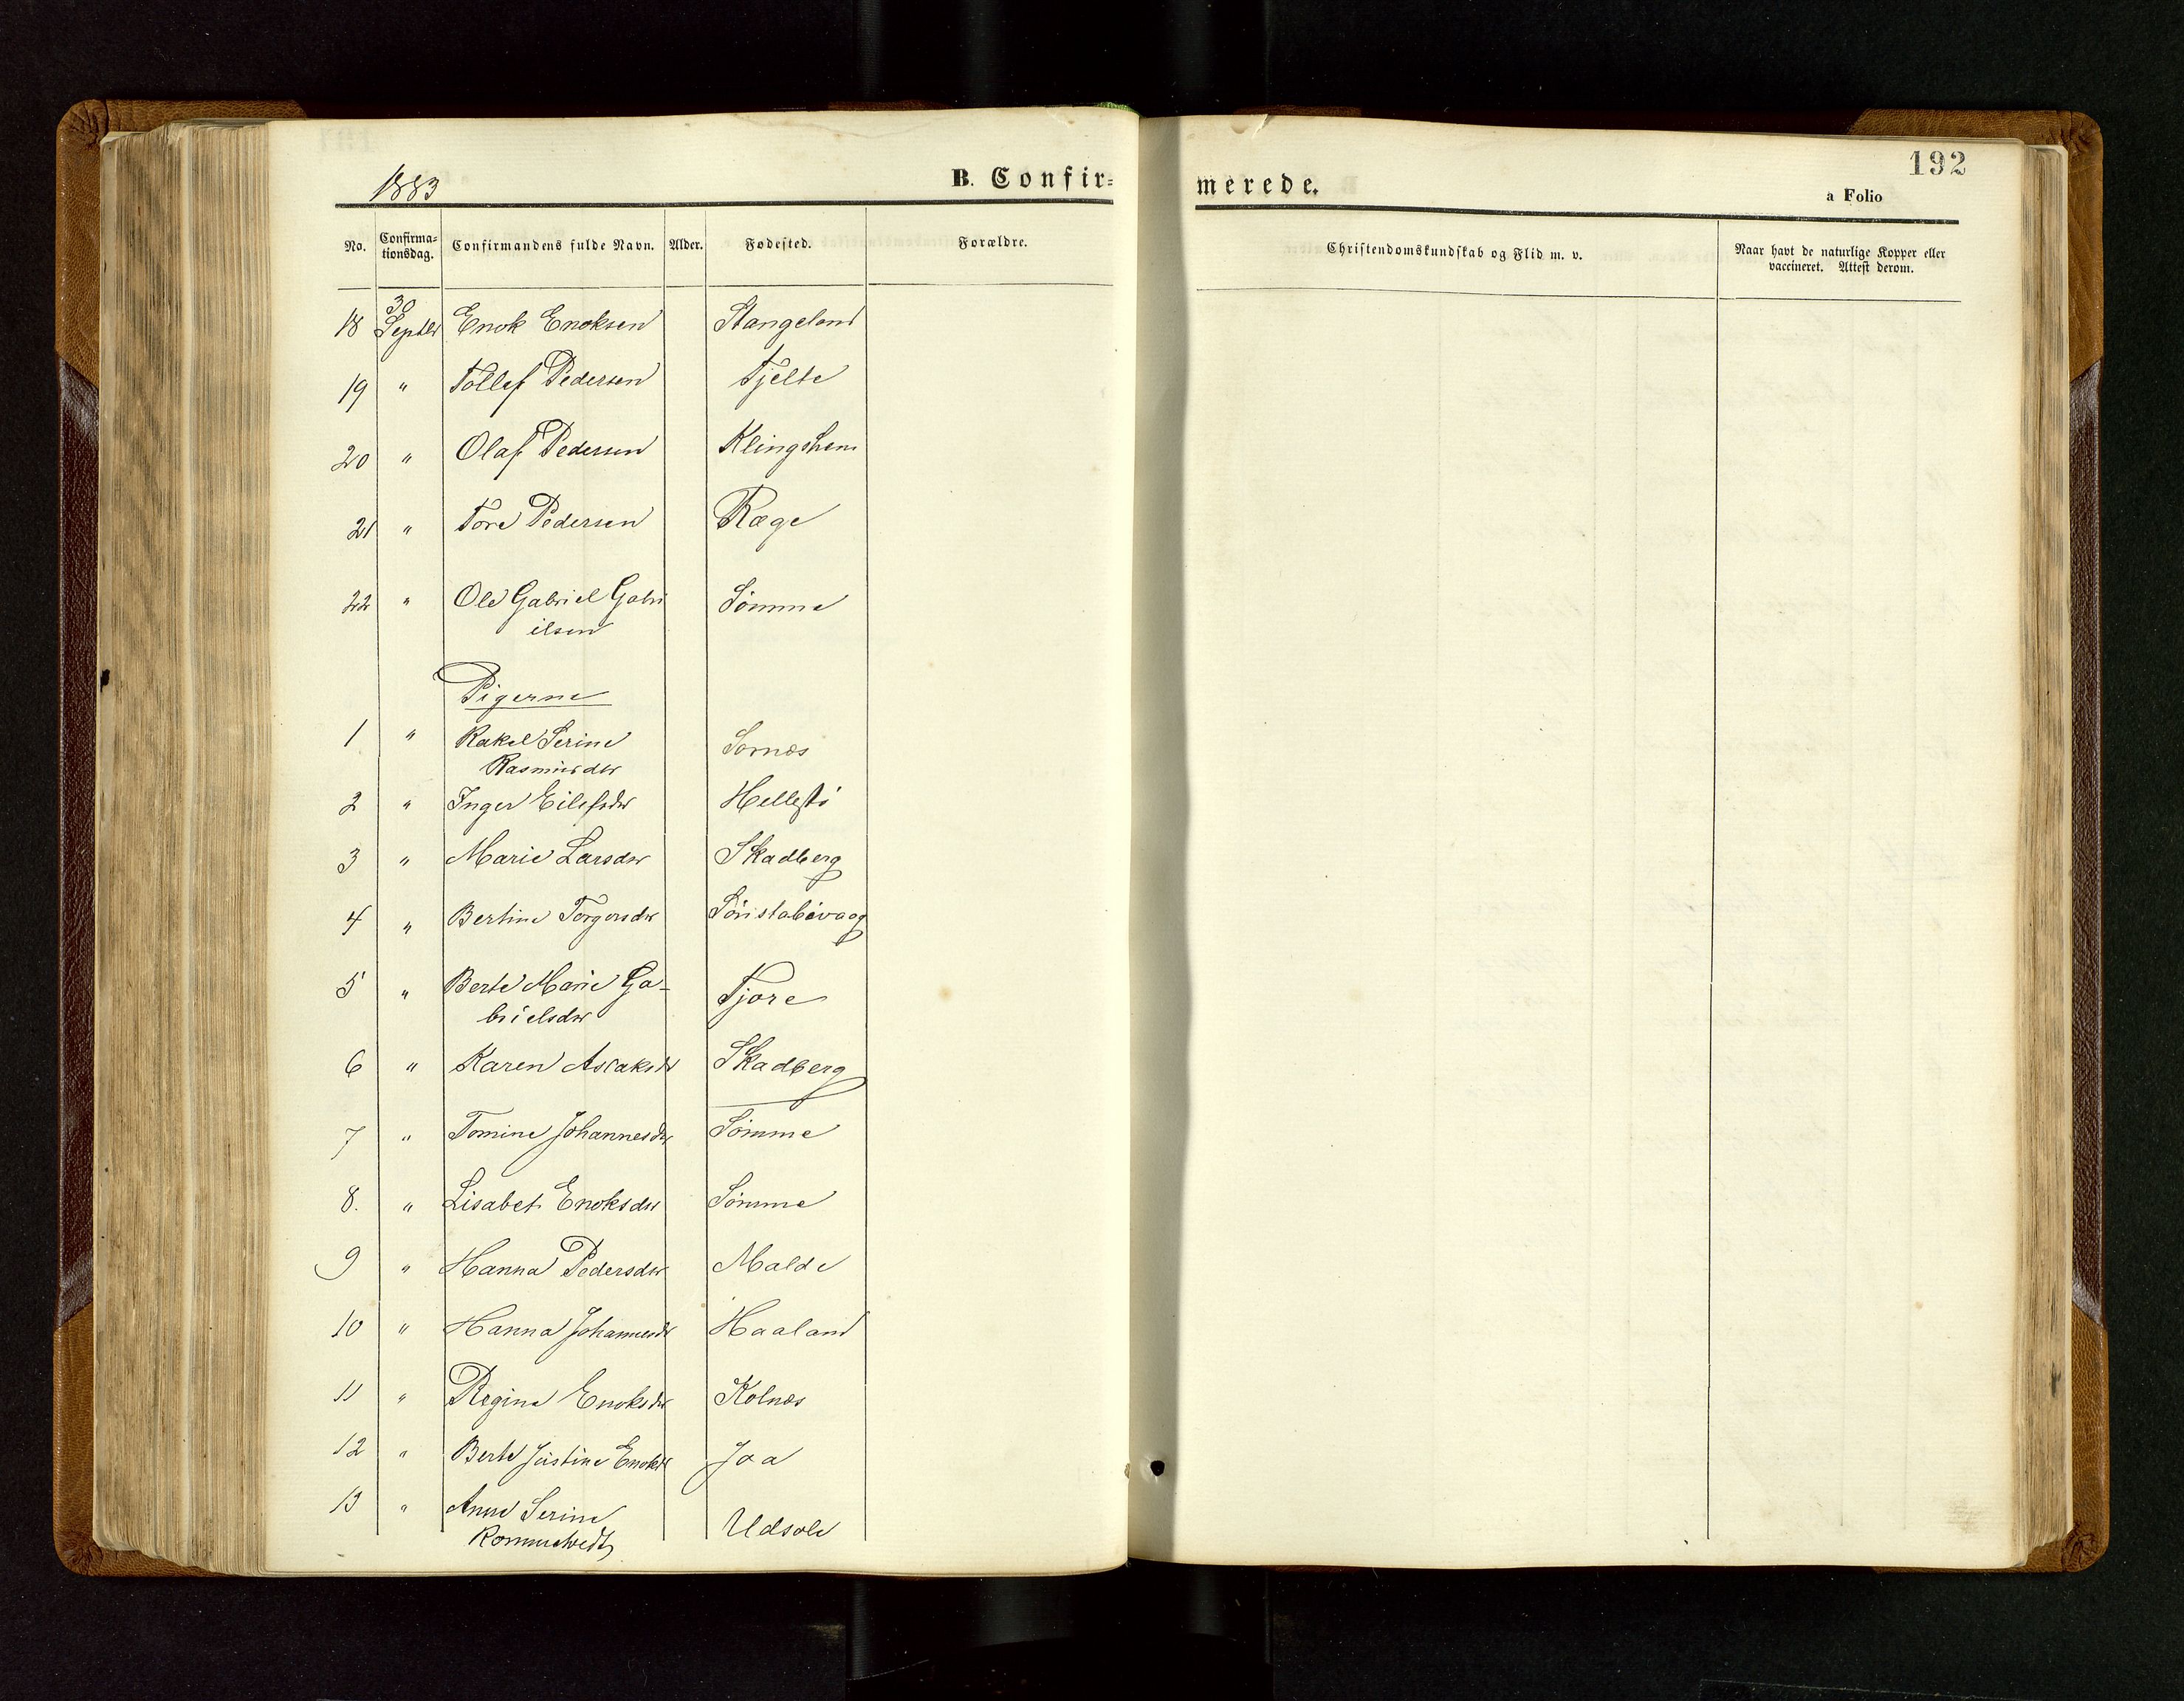 1883
B. Confir=
merede.
192
a Folio
No. Confirma= tionsdag. Confirmandens fulde Navn. Alder. Fødested. Forældre.
Christendomskundskab og Flid m. v. Naar havt de naturlige Kopper eller vaccineret. Attest derom.
18 30 Septbr Enok Enoksen Stangeland
19 " Tollef Pedersen Tjelte
20 " Olaf Pedersen Klingshem
21 " Tore Pedersen Ræge
22 " Ole Gabriel Gabri
ilsen Sömme
Pigerne
1 " Rakel Serine
Rasmusdtr Sornæs
2 " Inger Eilefsdtr Hellestö
3 " Marie Larsdtr Skadberg
4 " Bertine Torgersdtr
5 " Berte Marie Ga-
brielsdtr Tjore
6 " Karen Aslaksdtr Skadberg
7 " Tomine Johannesdtr Sömme
8. " Lisabet Enoksdtr Sömme
9 " Hanna Pedersdtr Malde
10 " Hanna Johannesdtr Haaland
11 " Regine Enoksdtr Kolnæs
12 " Berte Justine Enoksdtr Jaa
13 " Anne Serine
Rommetvedt Udsole